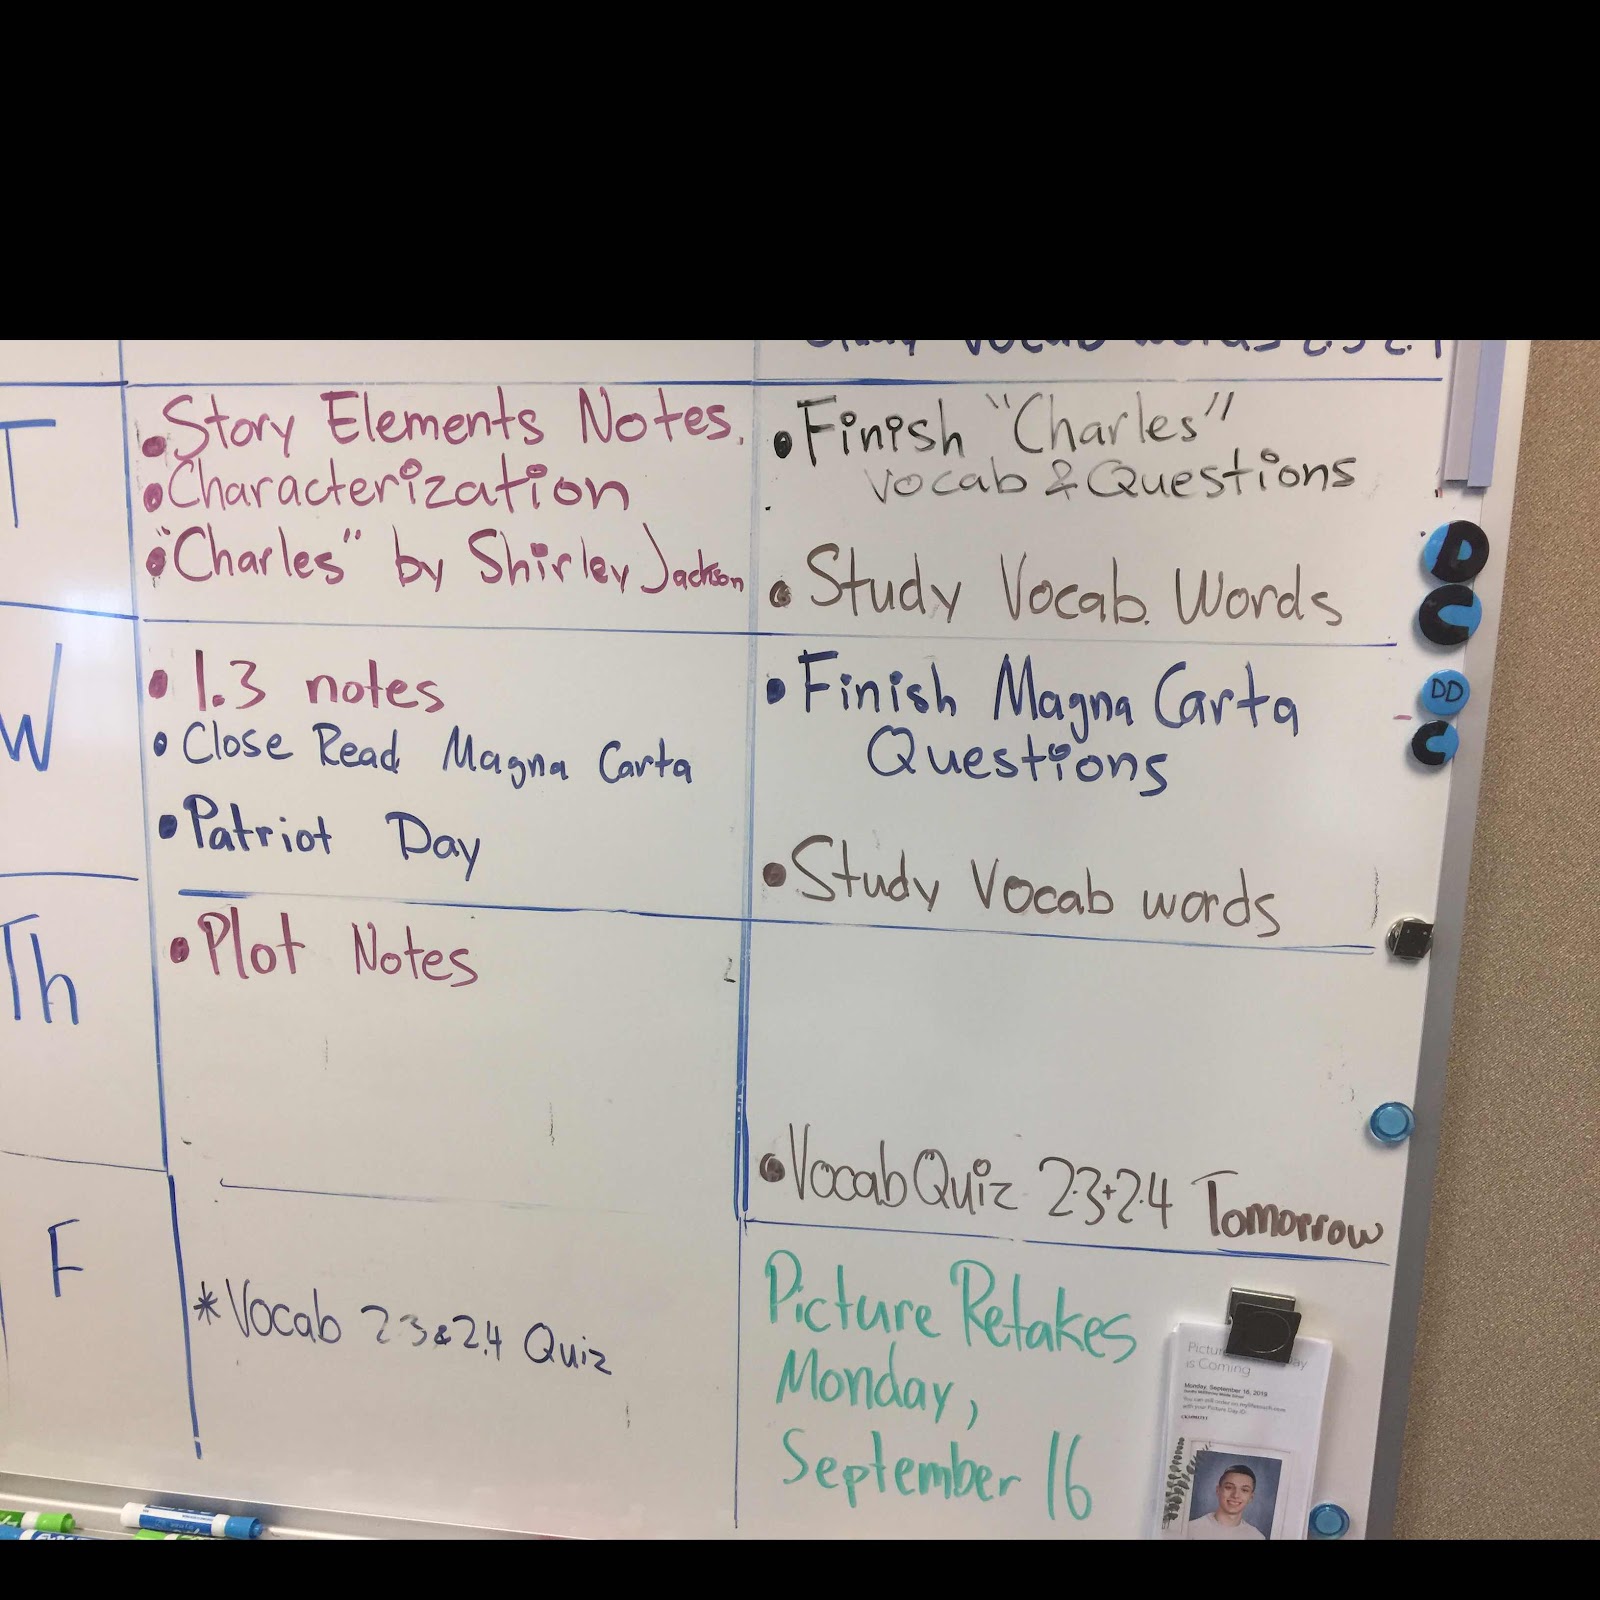 Study Vocab Words 2.3 2.4
T
• Story Elements Notes.
• Characterization
• "Charles" by Shirley Jackson
• Finish "Charles"
Vocab & Questions
• Study Vocab. Words
W
• 1.3 notes
• Close Read Magna Carta
• Patriot Day
• Finish Magna Carta
Questions
• Study Vocab words
Th
• Plot Notes
• Vocab Quiz 2.3+2.4 Tomorrow
F
* Vocab 2.3 & 2.4 Quiz
Picture Retakes
Monday,
September 16
D
C
DD
C
Pictu ay
is Coming
Monday, September 16, 2019